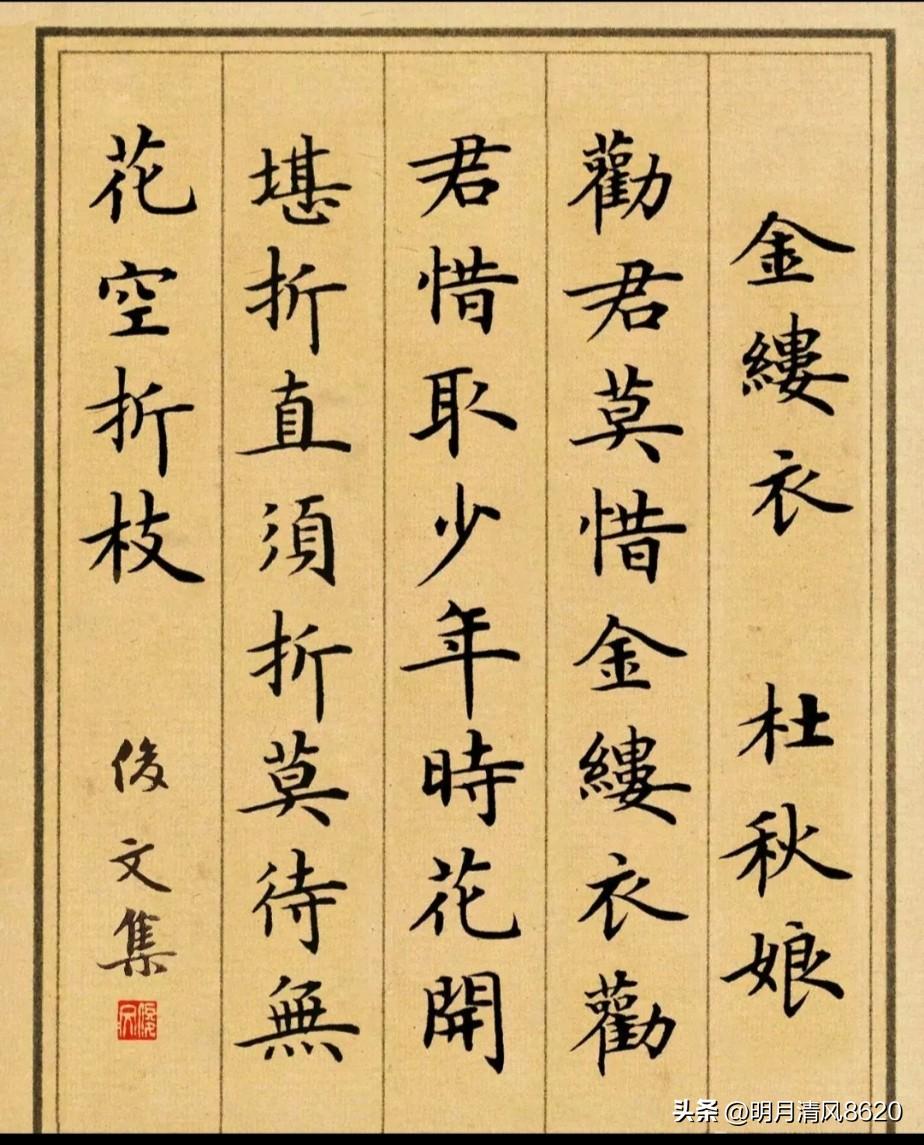 金縷衣 杜秋娘
勸君莫惜金縷衣勸
君惜取少年時花開
堪折直須折莫待無
花空折枝 俊文集
俊文
头条 @明月清风8620